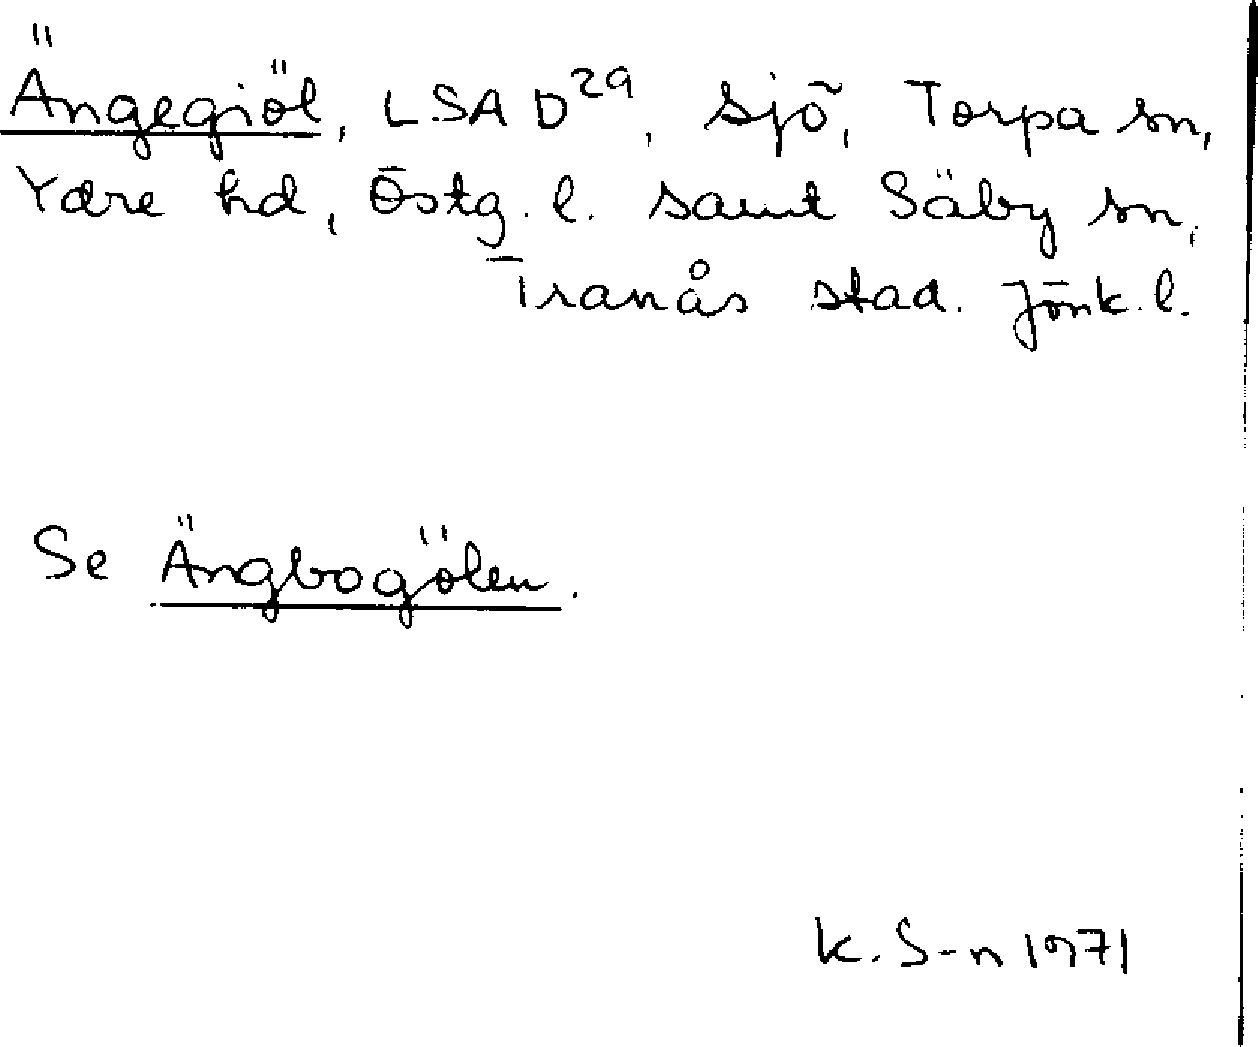 Ängegiöl, LSA D29, sjö, Torpa sn,
Ydre hd, Östg. l. samt Säby sn,
Tranås stad. Jönk. l.
Se Ängbogölen.
K. S-n 1971